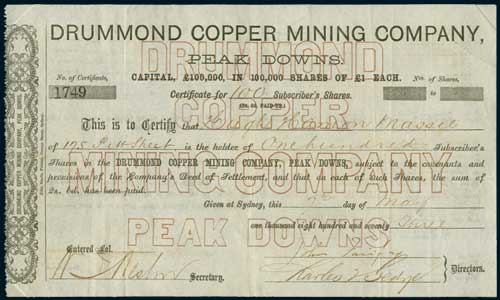 DRUMMOND COPPER MINING COMPANY,
PEAK DOWNS.
CAPITAL, £100,000, IN 100,000 SHARES OF £1 EACH.
No. of Certificate, Nos. of Shares,
1749 to
Certificate for 100 Subscriber's Shares.
(2s. 6d. PAID-UP.)
This is to Certify that Hugh Hamon Massie
of 195 Pitt Street is the holder of One hundred Subscriber's
Shares in the DRUMMOND COPPER MINING COMPANY, PEAK DOWNS, subject to the covenants and
provisions of the Company's Deed of Settlement, and that on each of such Shares, the sum of
2s. 6d. has been paid.
Given at Sydney, this day of May
one thousand eight hundred and seventy three
Entered Fol.
Secretary.
Directors.
DRUMMOND
COPPER
MINING COMPANY
PEAK DOWNS